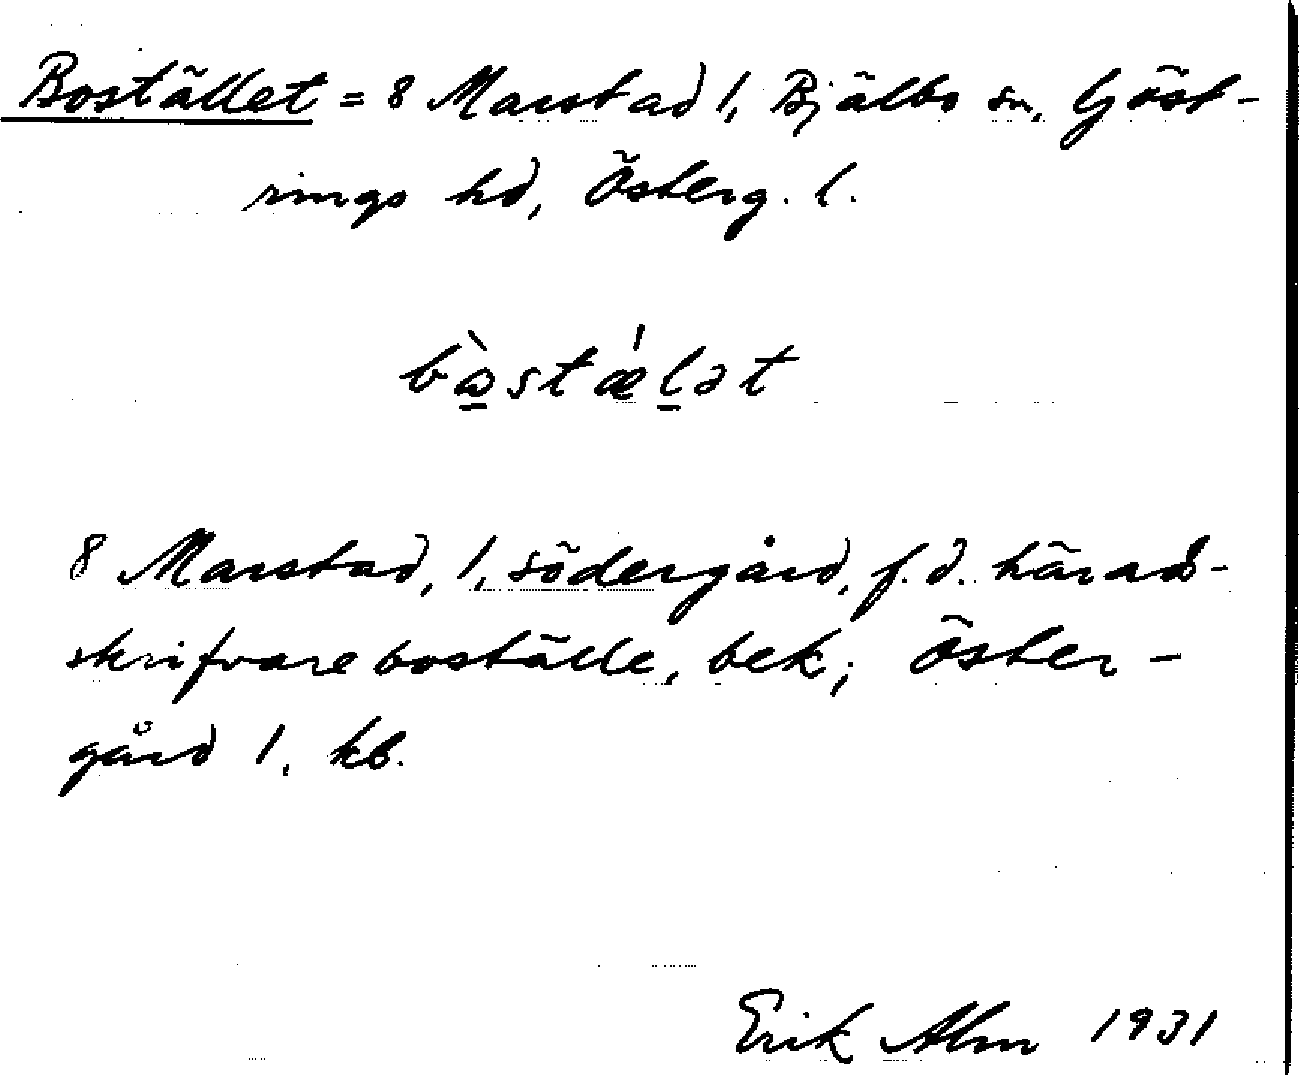 Bostället = 8 Marstad 1, Bjälbo sn, Göst-
rings hd, Österg. l.
bòstǽlət
8 Marstad, 1, södergård, f. d. härads-
skrifvareboställe, bek; Öster-
gård 1, kb.
Erik Alm 1931